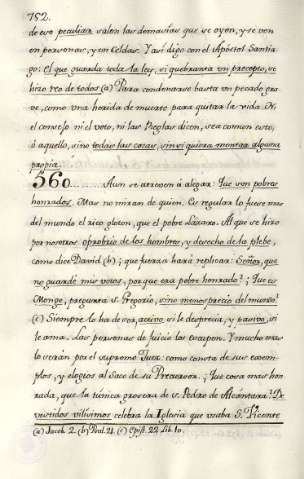 752.
de ese peculiar salen las demasías que se oyen, y se ven
en personas, y en Celdas. Y así digo con el Apóstol Santia-
go: El que guarda toda la ley, si quebranta un precepto, se
hizo reo de todos (a) Para condenarse basta un pecado gra-
ve, como una herida de muerte para quitar la vida. Ni
el consejo ni el voto, ni las Reglas dicen, sea comun esto,
ó aquello, sino todas las cosas, sin
propia.
560....... Aun se atreven á alegar: Que son pobres
honrados. Mas no miran de quien. Es regular lo fuese mas
del mundo el rico gloton, que el pobre Lázaro. Al que se hizo
por nosotros oprobrio de los hombres, y desecho de la plebe,
como dice David (b); que fuerza hará replicar: Señor, que
no guardé mis votos, porque era pobre honrado? ¿Que es
Monge, pregunta S. Gregorio, sino menosprecio del mundo?
(c) Siempre lo ha de ser, activo, si le desprecia, y pasivo, si
le ama. Las personas de juicio las Y mucho mas
lo verán por el supremo Juez: como consta de sus exem-
plos, y elogios al Saco de su Precursor. ¿Que cosa mas hon-
rada, que la túnica grosera de S. Pedro de Alcántara? De
vestidos vilísimos celebra la Iglesia que usaba S. Vicente
(a) Jacob. 2. (b) Psal. 21. (c) Epist. 22. Lib. 10.